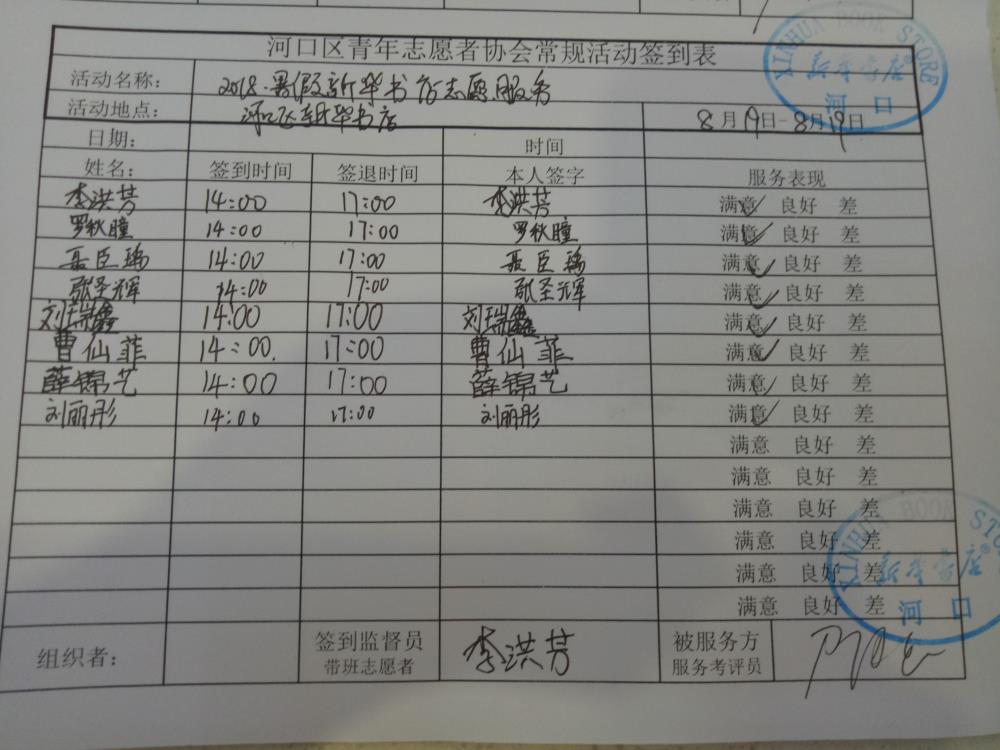 河口区青年志愿者协会常规活动签到表
活动名称： 2018.暑假新华书店志愿服务
活动地点： 河口区新华书店 8月19日-8月19日
日期： 时间
姓名： 签到时间 签退时间 本人签字 服务表现
李洪芳 14:00 17:00 李洪芳 满意 良好 差
罗秋瞳 14:00 17:00 罗秋瞳 满意 良好 差
聂臣瑀 14:00 17:00 聂臣瑀 满意 良好 差
张圣辉 14:00 17:00 张圣辉 满意 良好 差
刘瑞鑫 14:00 17:00 刘瑞鑫 满意 良好 差
曹仙菲 14:00 17:00 曹仙菲 满意 良好 差
薛锦艺 14:00 17:00 薛锦艺 满意 良好 差
刘丽彤 14:00 17:00 刘丽彤 满意 良好 差
满意 良好 差
满意 良好 差
满意 良好 差
满意 良好 差
满意 良好 差
满意 良好 差
组织者： 签到监督员 李洪芳 被服务方
带班志愿者 服务考评员
XINHUA BOOK STORE
新华书店®
河口
XINHUA BOOK STO
新华书店®
河口